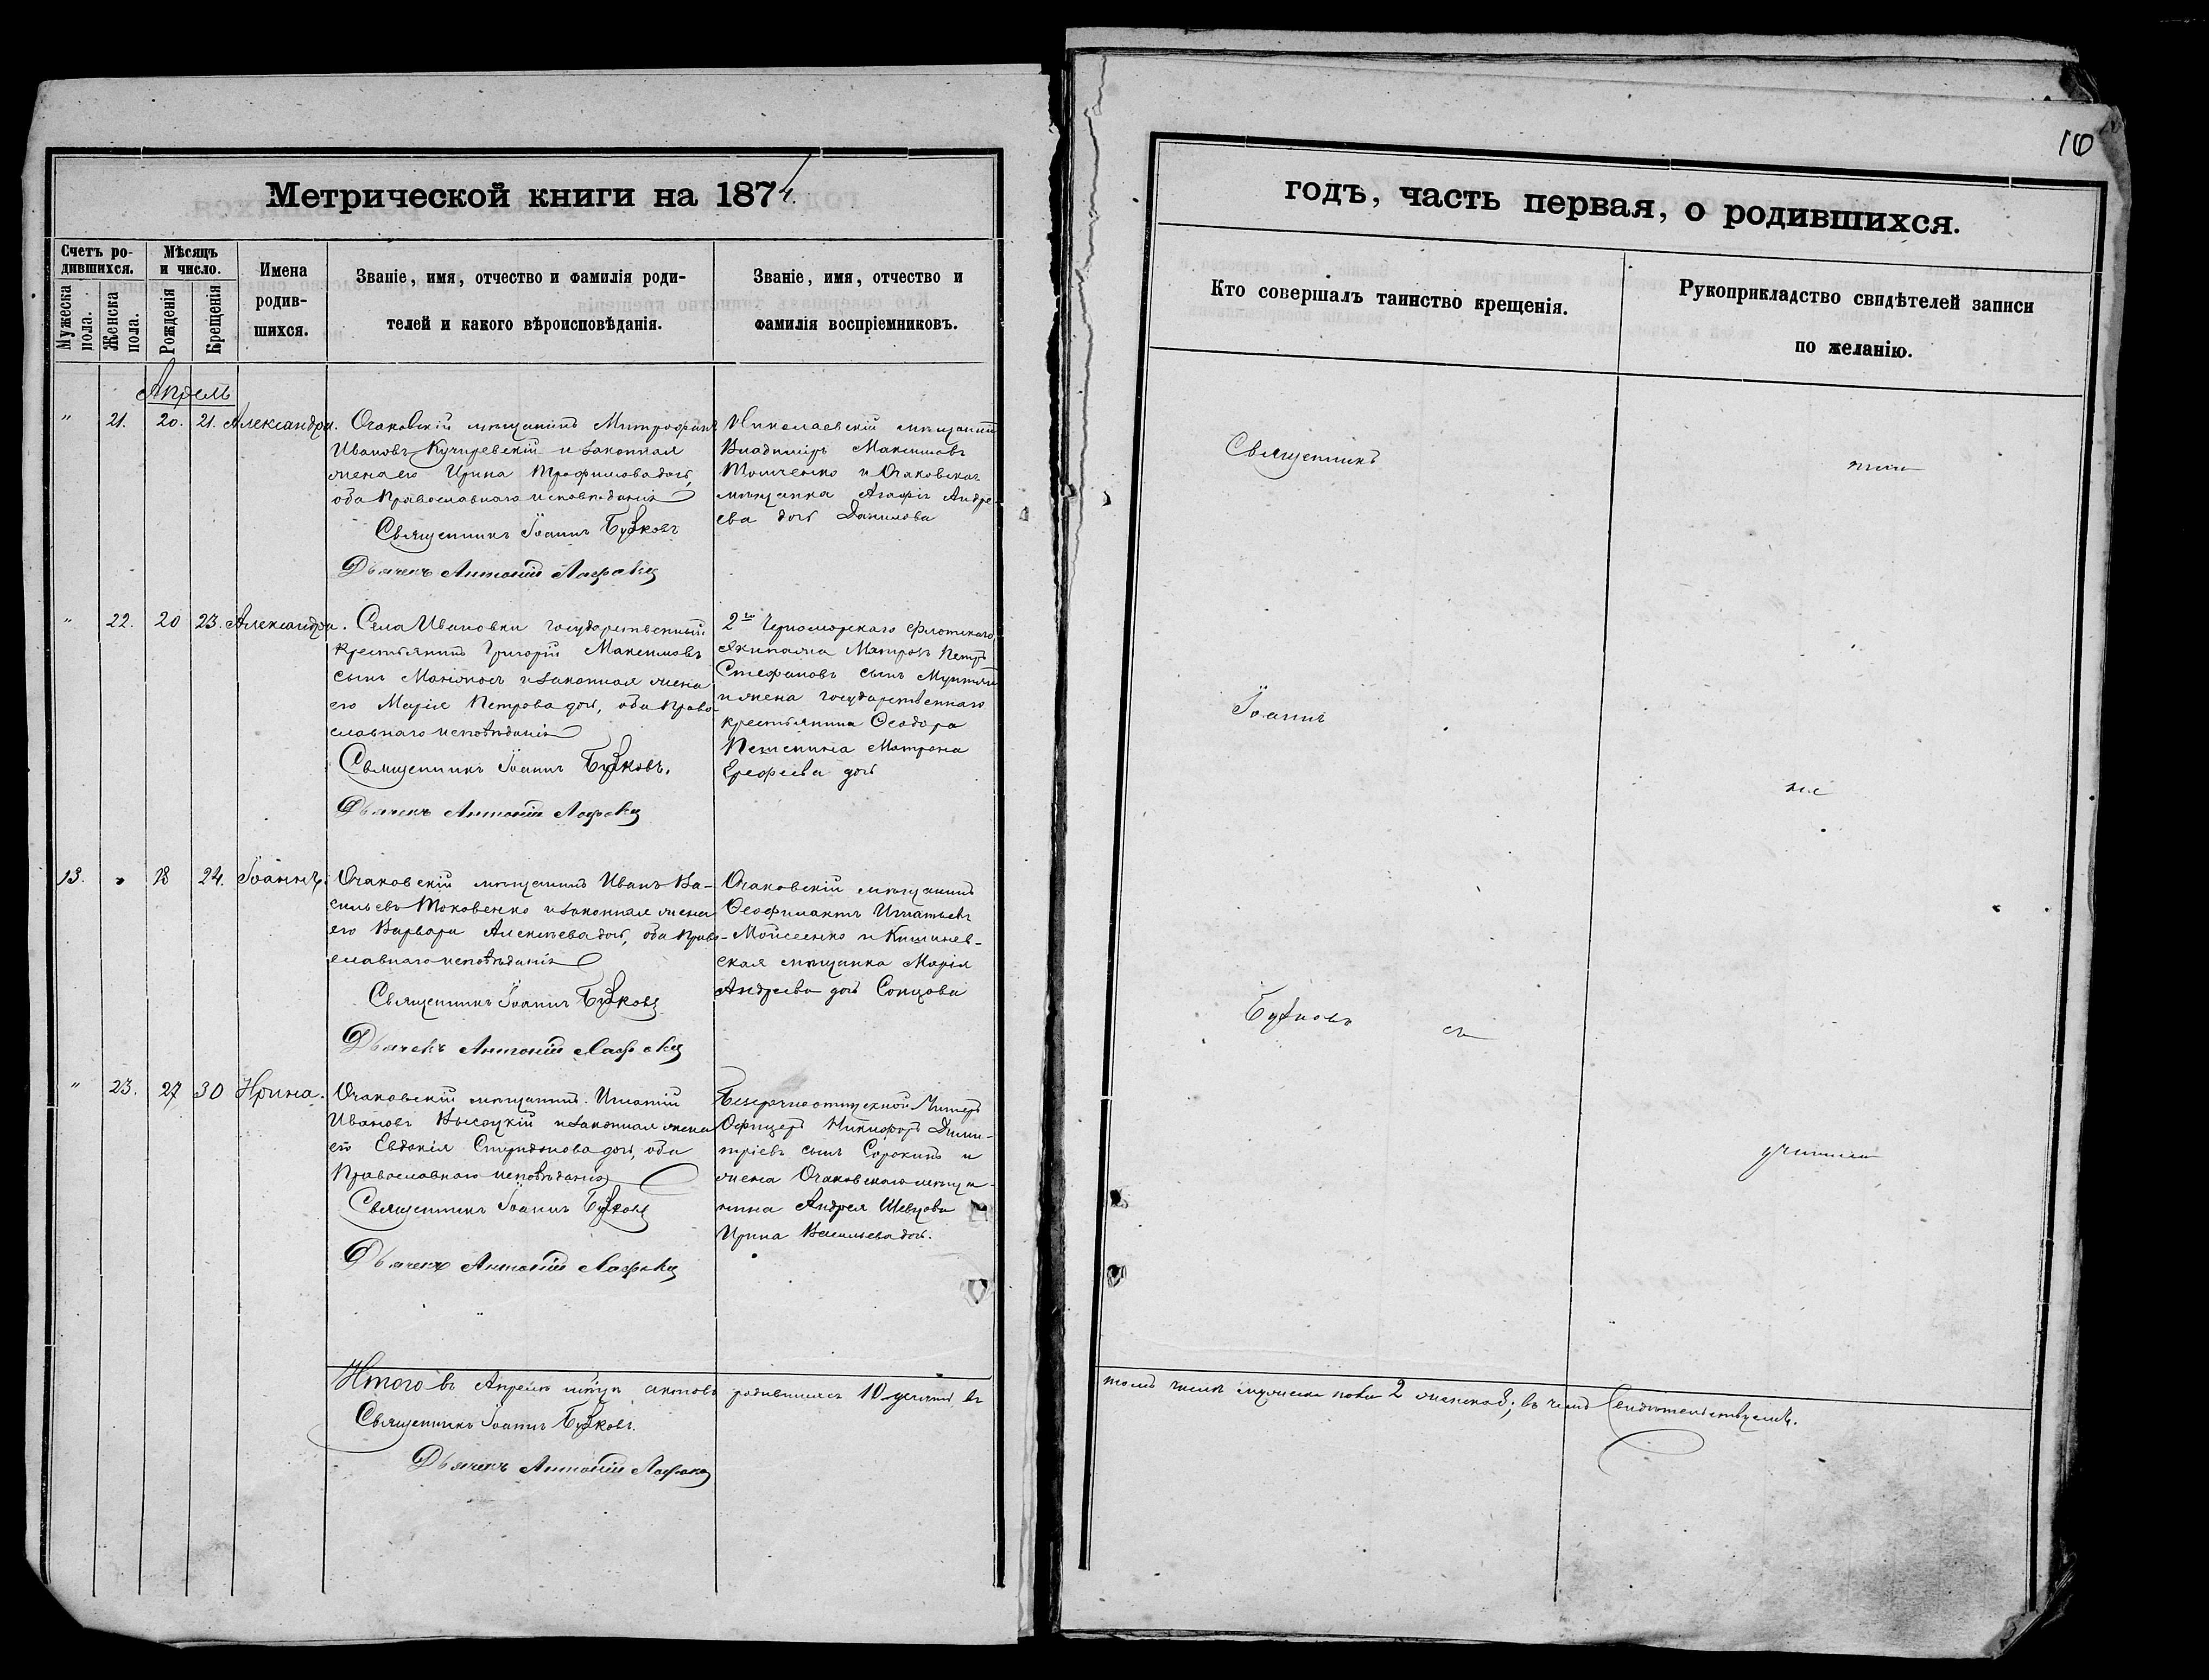 Метрической книги на 1874.
Счетъ ро-
дившихся.
Мѣсяцъ
и число.
Мужеска
пола.
Женска
пола.
Рожденія
Крещенія
Имена
родив-
шихся.
Званіе, имя, отчество и фамилія роди-
телей и какого вѣроисповѣданія.
Званіе, имя, отчество и
фамилія воспріемниковъ.
Апрель
" 21. 20. 21. Александра.
Очаковскій мѣщанинъ Митрофанъ
Ивановъ Кучиревскій и законная
жена его Ирина Трофимова дочь,
оба Православнаго исповѣданія
Священникъ Іоаннъ Бубковъ
Дьячекъ Антоній
Николаевскій мѣщанинъ
Владиміръ Максимовъ
Томченко и Очаковская
мѣщанка Агафія Андре-
ева дочь Данилова
" 22. 20 23. Александра.
Села Ивановки государственный
крестьянинъ Григорій Максимовъ
сынъ и законная жена
его Марія Петрова дочь, оба Право-
славнаго исповѣданія
Священникъ Іоаннъ Бубковъ.
Дьячекъ Антоній
2го Черноморскаго флотскаго
экипажа Матросъ Петръ
Стефановъ сынъ
и жена государственнаго
крестьянина Ѳеодора
Матрона
Ерофеева дочь
13. " 18 24. Іоаннъ.
Очаковскій мѣщанинъ Иванъ Ва-
сильевъ Токовенко и законная жена
его Варвара Алексѣева дочь, оба Право-
славнаго исповѣданія
Священникъ Іоаннъ Бубковъ
Дьячекъ Антоній
Очаковскій мѣщанинъ
Ѳеофилактъ Игнатьевъ
Мойсеенко и Кишинев-
ская мѣщанка Марія
Андреева дочь Сонцова
" 23. 27 30 Ирина.
Очаковскій мѣщанинъ Игнатій
Ивановъ Высоцкій и законная жена
его Евдокія Спиридонова дочь, оба
Православнаго исповѣданія
Священникъ Іоаннъ Бубковъ
Дьячекъ Антоній
Безсрочноотпускной Унтеръ
Офицеръ Никифоръ Дими-
тріевъ сынъ Сорокинъ и
жена Очаковскаго мѣща-
нина Андрея Шевцова
Ирина Васильева дочь.
Итого въ Апрелѣ мѣсяцѣ актовъ родившихся 10 учинено, въ
Священникъ Іоаннъ Бубковъ.
Дьячекъ Антоній
16
годъ, часть первая, о родившихся.
Кто совершалъ таинство крещенія.
Рукоприкладство свидѣтелей записи
по желанію.
Священникъ
Іоаннъ
не
Бубковъ
томъ числѣ мужеска пола 2 женска 8; въ чемъ Свидѣтельствуемъ.